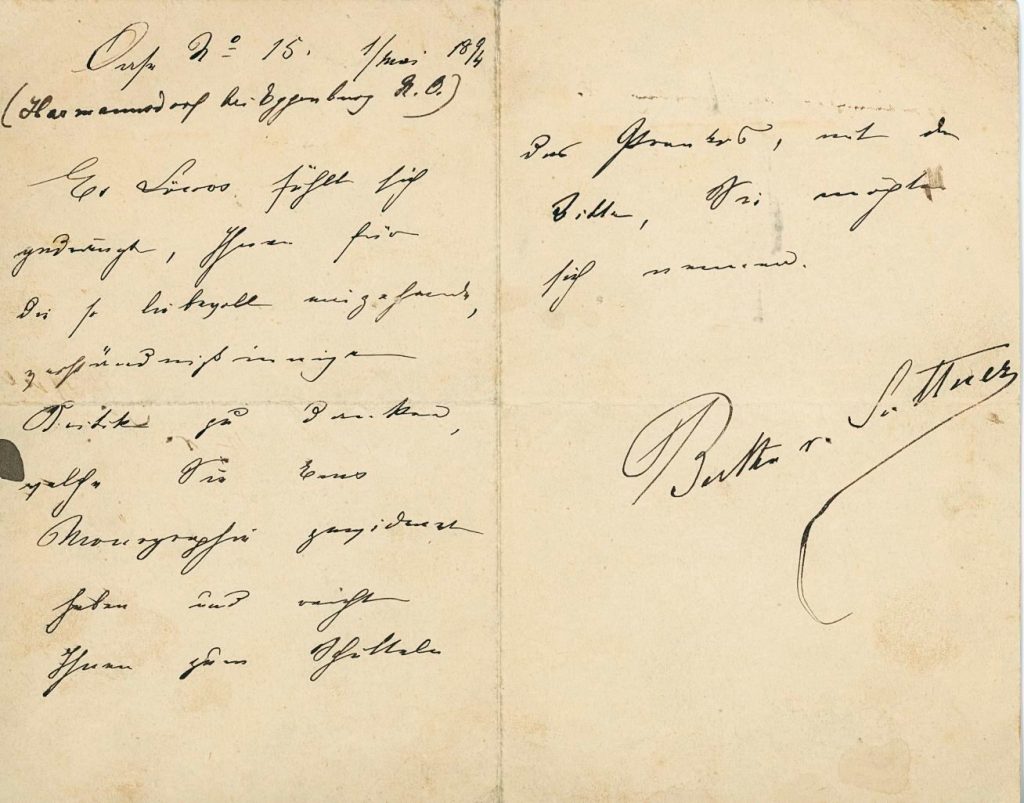 Oase No 15. 1/Mai 1894
(Harmannsdorf bei Eggenburg N.O.)
Es Löwos fühlt sich
gedrängt, Ihnen für
die so liebevoll eingehende,
verständnißinnige
Kritik zu danken,
welche Sie
Monographie gewidmet
haben und reicht
Ihnen zum Schütteln
das mit der
Bitte, Sie möchten
sich nennen.
Bertha v. Suttner